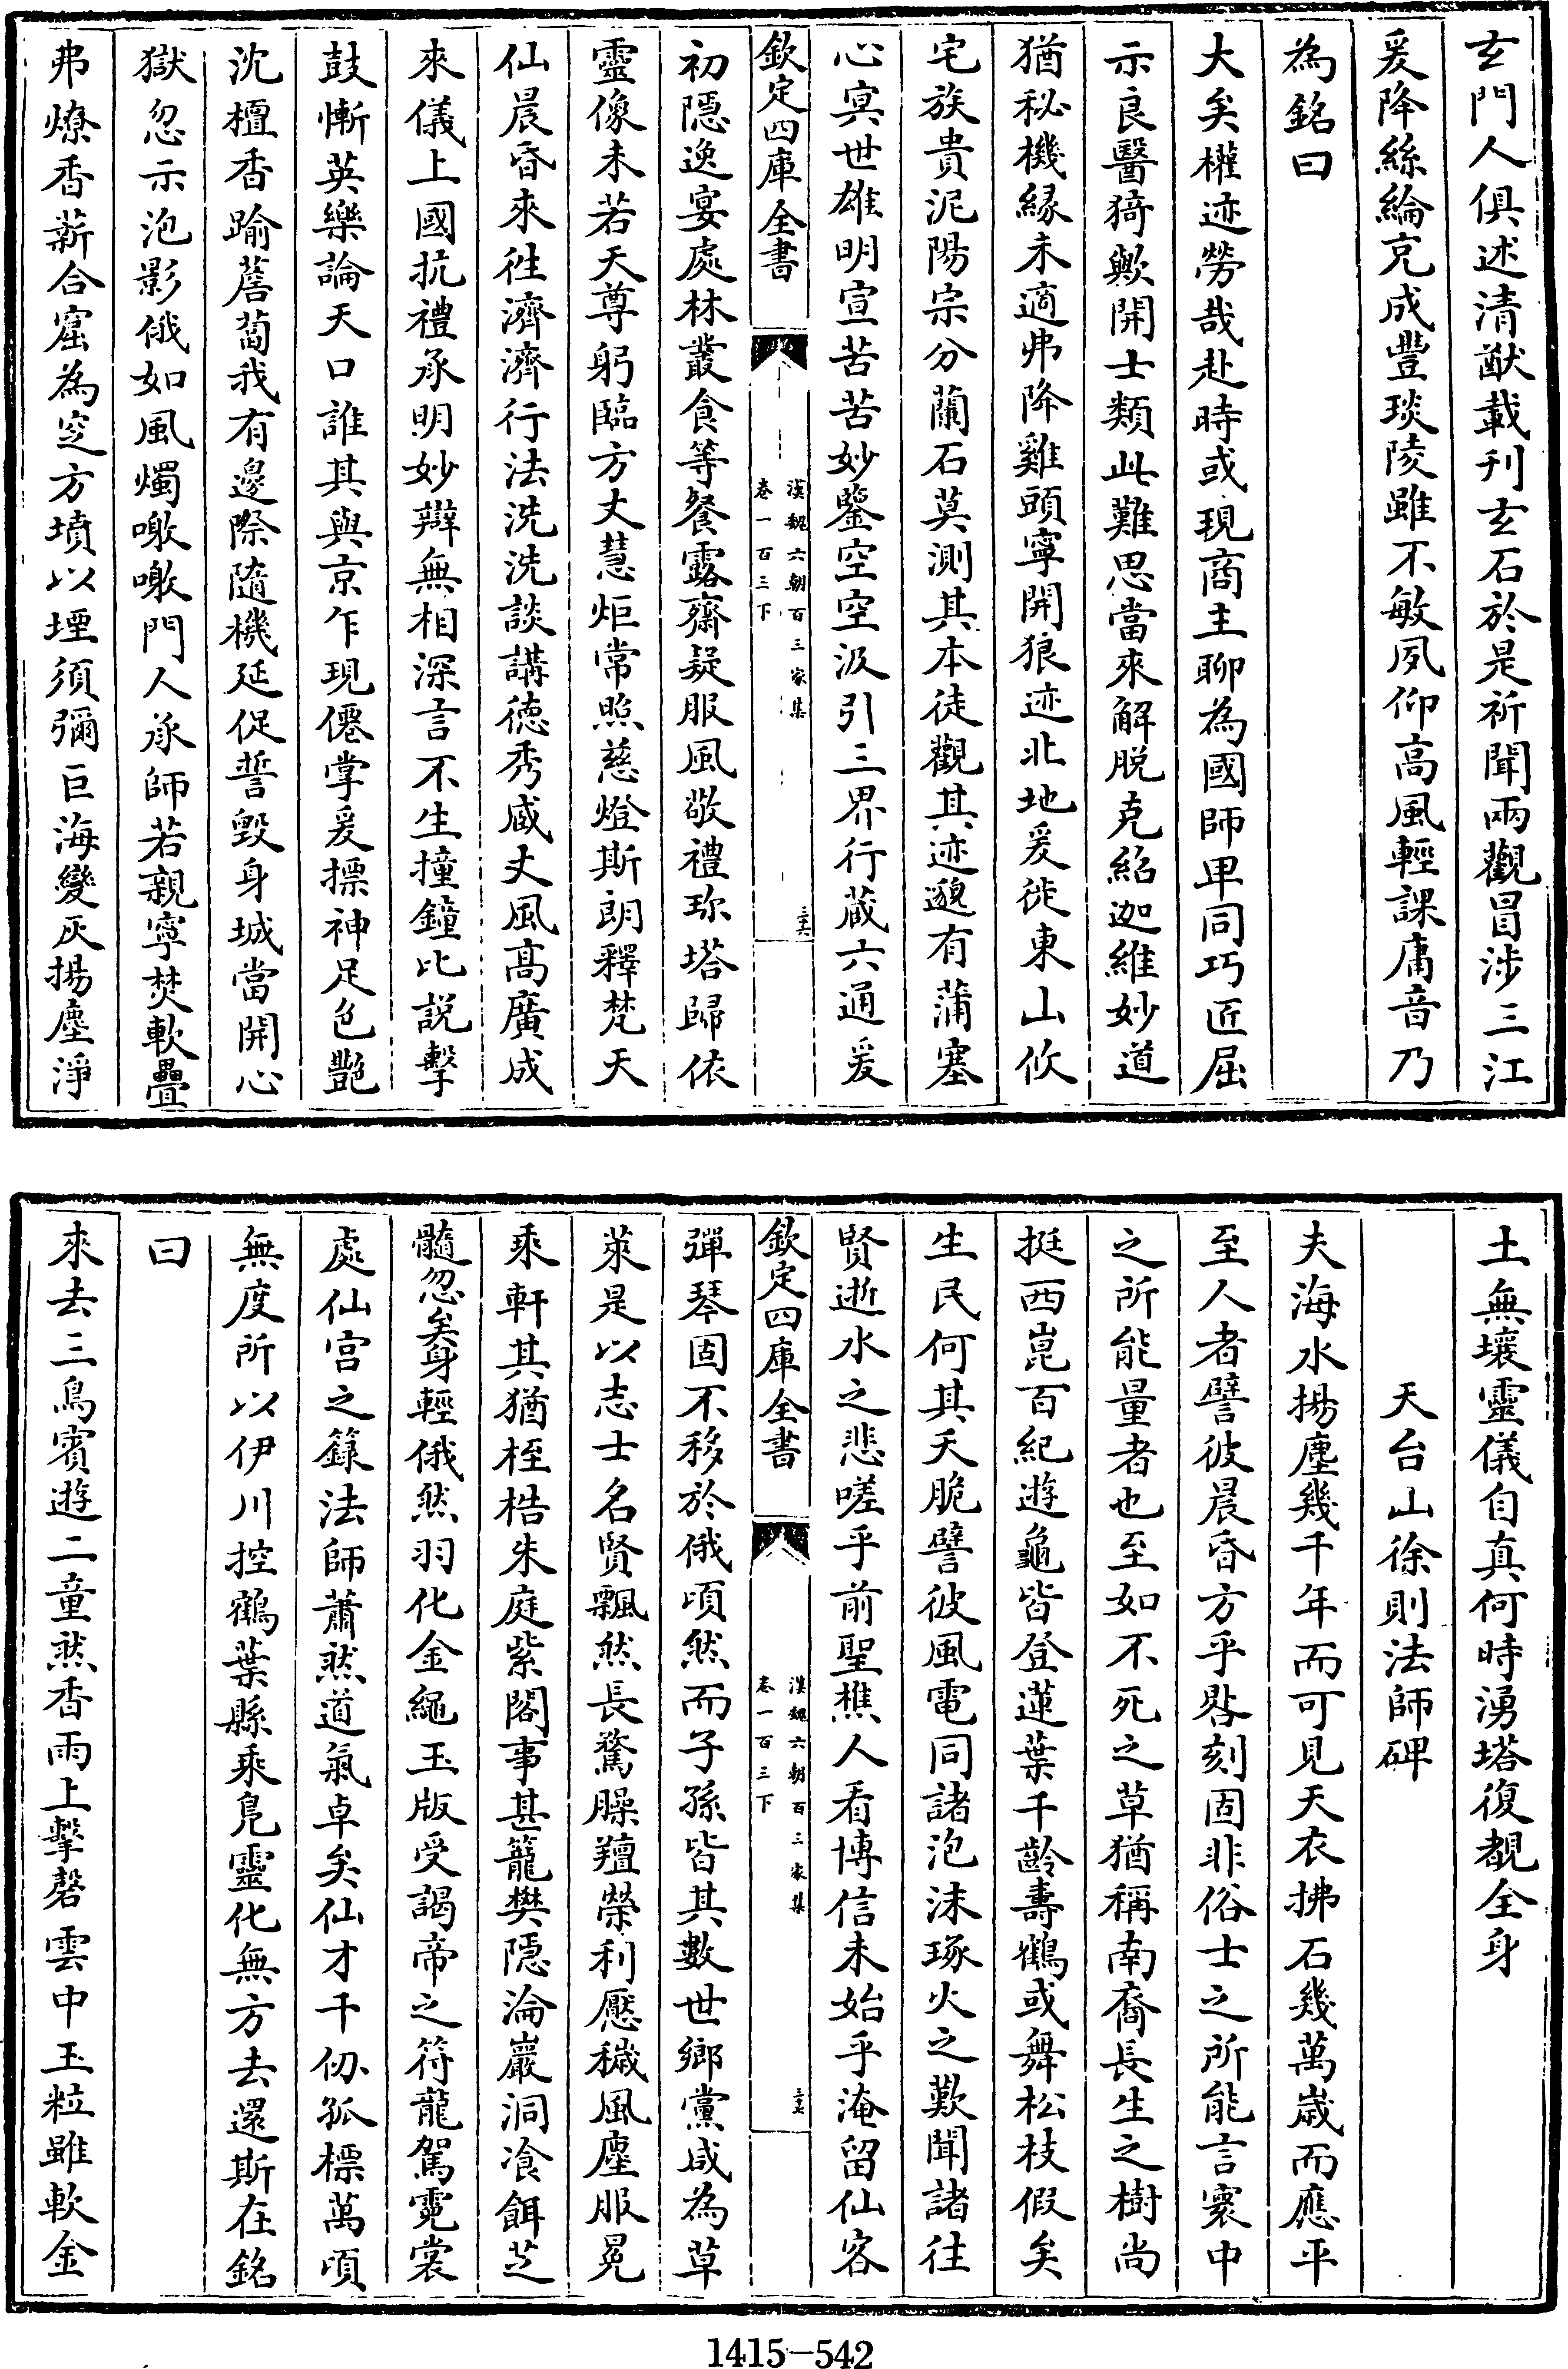 玄門人俱述清猷載刋玄石於是祈聞兩觀冒涉三江
爰降絲綸克成豐琰陵雖不敏夙仰高風輕課庸音乃
為銘曰
大矣權迹勞哉赴時或現商主聊為國師卑同巧匠屈
示良醫猗歟開士類此難思當來解脱克紹迦維妙道
猶秘機緣未適弗降雞頭寧開狼迹北地爰徙東山攸
宅族貴泥陽宗分蘭石莫測其本徒觀其迹邈有蒲塞
心㝠世雄明宣苦苦妙鑒空空汲引三界行藏六通爰
欽定四庫全書
漢魏六朝百三家集
卷一百三下
三十六
初隱逸宴處林叢食等餐露齋疑服風敬禮珎塔歸依
靈像未若天尊躬臨方丈慧炬常照慈燈斯朗釋梵天
仙晨昏來徃濟濟行法洗洗談講德秀臧丈風髙廣成
來儀上國抗禮承明妙辯無相深言不生撞鐘比説擊
鼓慚英樂論天口誰其與京乍現僊掌爰摽神足色艷
沈檀香踰蒼蔔我有邊際隨機延促誓毁身城當開心
獄忽示泡影俄如風燭噭噭門人承師若親寧焚軟疊
弗燎香薪合窟為窆方墳以堙須彌巨海變灰揚塵淨
土無壤靈儀自真何時湧塔復覩全身
天台山徐則法師碑
夫海水揚塵幾千年而可見天衣拂石幾萬歲而應平
至人者譬彼晨昏方乎晷刻固非俗士之所能言寰中
之所能量者也至如不死之草猶稱南裔長生之樹尚
挺西崑百紀遊龜皆登蓮葉千齡壽鶴或舞松枝假矣
生民何其夭脆譬彼風電同諸泡沫琢火之歎聞諸往
賢逝水之悲嗟乎前聖樵人看博信未始乎淹留仙客
欽定四庫全書
漢魏六朝百三家集
卷一百三下
三十七
彈琴固不移於俄頃然而子孫皆其數世鄉黨咸為草
萊是以志士名賢飄然長騖臊羶榮利壓穢風塵服冕
乘軒其猶桎梏朱庭紫閣事甚籠樊隱淪巖洞飡餌芝
髓忽矣身輕俄然羽化金繩玉版受謁帝之符龍駕霓裳
處仙宫之籙法師蕭然道氣卓矣仙才千仭孤標萬頃
無度所以伊川控鶴葉縣乘鳬靈化無方去還斯在銘
曰
來去三鳥賓遊二童然香雨上擊磬雲中玉粒雖軟金
1415-542